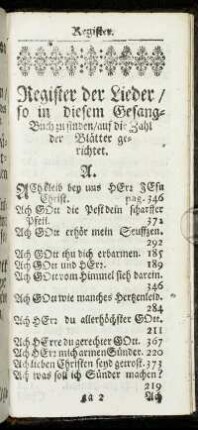 Register.
Register der Lieder /
so in diesem Gesang-
Buch zu finden / auf die Zahl
der Blätter ge-
richtet.
A.
ACh bleib bey uns HErr JEsu
Christ. pag. 346
Ach GOtt die Pest dein scharffer
Pfeil. 372
Ach GOtt erhör mein Seuffzen.
292
Ach GOtt thu dich erbarmen. 185
Ach GOtt und HErr. 189
Ach GOtt vom Himmel sieh darein.
346
Ach GOtt wie manches Hertzenleid.
284
Ach HErr du allerhöchster GOtt.
211
Ach HErre du gerechter GOtt. 367
Ach HErr mich armen Sünder. 220
Ach lieben Christen seyd getrost. 373
Ach was soll ich Sünder machen?
219
a 2 Ach